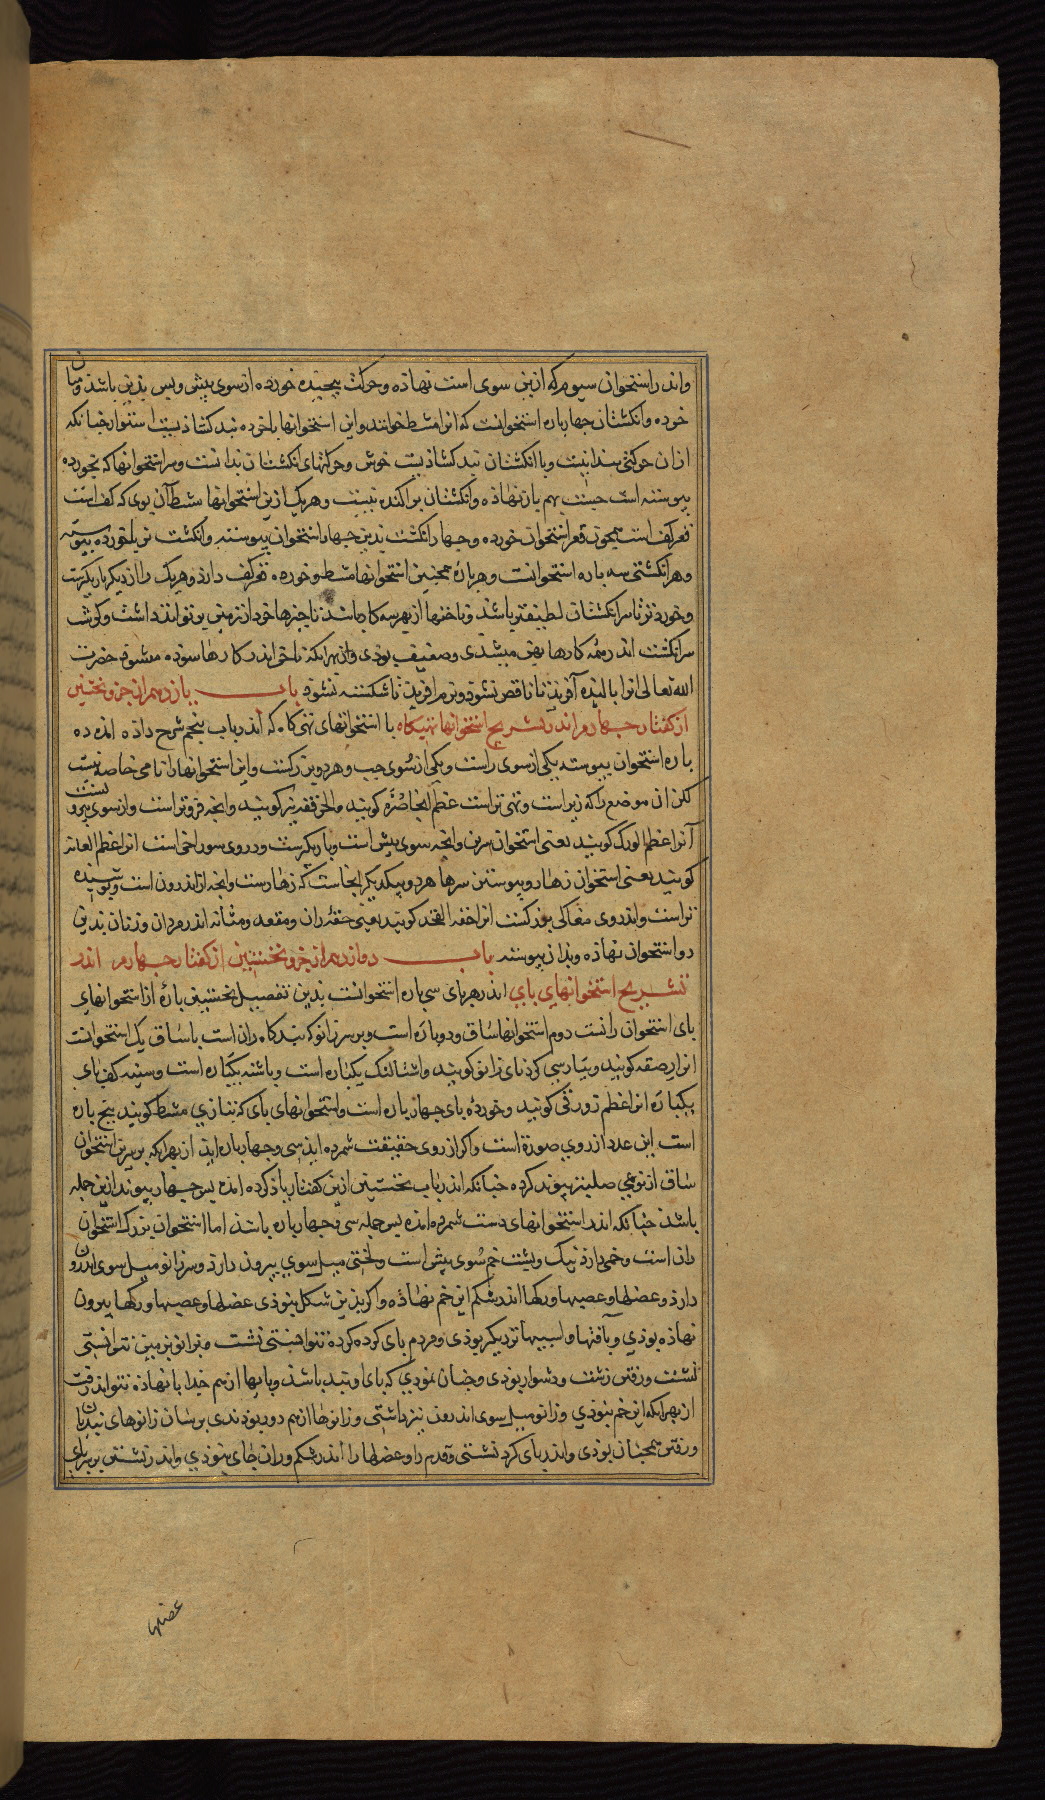 واندر استخوان سیوم که ازین سوی است نهاده وحرکت پیچیده خورده از سوی پیش وپس بذین باشذ ومیان
خرده وانکشتان جهار پاره استخوانست که انرا مشط خوانند واین استخوانها با خرده نبد کشاذ نیست استوار جنانکه
ازان حرکتی بیدا نیست وبا انکشتان نبد کشاذیست خوش وحرکتهای انکشتان بدانست وسر استخوانها که بخورده
پیوسته است جست بهم باز نهاذه وانکشتان براکنده نیست وهریک ازین استخوانها مشط آن سوی که کف است
قعر کف است همچون قعر استخوان خورده وجهار انکشت بذین جهار استخوان پیوسته وانکشت نر باخورده پیوسته
وهر انکشتی سه پاره استخوانست وهر پارهٔ همچنین استخوانها مشط وخورده تقعر کف دارذ وهریک را از دیکر باریکترست
وخوردتر تا سر انکشتان لطیفتر باشذ وناخنها از بهر سه کار جانند تا جیزها خود از زمین بر تواند داشت وکوشت
سر انکشت اندر همه کارها بهن میشدی وضعیف بوذی وازبهر انکه ناخن اندر کارها سوده میشود حضرت
الله تعالی انرا بالنده آفرید تا ناقص نشوذ ونرم افرید تا شکسته نشوذ باب یازدهم از جزو نخستین
از کفتار جهارم اندر تشریح استخوانها تهیکاه با استخوانهای تهی کاه که اندر باب پنجم شرح داذه امده ده
پاره استخوان پیوسته یکی از سوی راست ویکی از سوی جب وهر دو بزرکست واین استخوانها را نامی خاصه نیست
لکن ان موضع را که زبر است وتهی تر است عظم الخاصره کویند والحرقفه نیز کویند وانجه فروتر است وازسوی بیرونست
آنرا عظم الورک کویند یعنی استخوان سرین وانجه سوی پیش است وباریکترست ودروی سوراخی است انرا عظم العانه
کویند یعنی استخوان زهار وپیوستن سرها هر دو بیکدیکر انجاست که زهارست وانجه از اندرون است وپوشیده
تر است واندروی مغاکی بزرکست انرا حقه الفخذ کویند یعنی حقه ران ومقعد ومثانه اندر مردان وزنان بذین
دو استخوان نهاذه وبذان پیوسته باب دوازدهم از جزو نخستین از کفتار جهارم اندر
تشریح استخوانهای پای اندر هر پای سی پاره استخوانست بذین تفصیل نخستین پارهٔ از استخوانهای
پای استخوان رانست دوم استخوانها ساق ودو پاره است وبر سر زانو که بندکاه ران است با ساق یک استخوانست
انرا رضفه کویند وبپارسی کردنای زانو کویند واشتالنک یکپاره است وپاشنه یکپاره است وسینه کف پای
یکپاره انرا عظم زورقی کویند وخوردهٔ پای جهار پاره است واستخوانهای پای که بتازی مشط کویند پنج پاره
است این عدد از روی صورة است واکر از روی حقیقت شمرده ایذ سی وجهار پاره ایذ از بهر انکه بر سر این استخوان
ساق از نوعی صلیتر پیوند کرده جنانکه اندر باب نخستین ازین کفتار یاذ کرده امد پس جهار پیوند ازین جمله
باشذ جنانکه اندر استخوانهای دست شمرده امد پس جمله سی وجهار پاره باشذ اما استخوان بزرک استخوان
ران است وخمی دارذ نیک وپشت خم سوی پیش است ولختی میل سوی بیرون دارذ وسر زانو میل سوی اندرون
دارذ وعضلها وعصبها ورکها اندر شکم این خم نهاذه واکر بذین شکل نبوذی عضلها وعصبها ورکها بیرون
نهاذه بوذی وبآفتها واسیبها نزدیکر بوذی ومردم پای کرده کرده نتوانستی نشست وبزانو بزمین نتوانستی
نشست ورفتن زشت ودشوار بوذی وجنان نموذی که پای او بند باشذ وپایها از هم جذا بانهاذه نتواند رفت
ازبهر انکه این خم نبوذی وزانو میل سوی اندرون نیز نداشتی وزانوها از هم دور بوذندی برسان زانوهای نبدیان
ورفتن همجنان بوذی واندر پای کرد نشستی وقدم را وعضلها را اندر شکم وران جای نبوذی واندر نشستن بر سر پای
عضلها